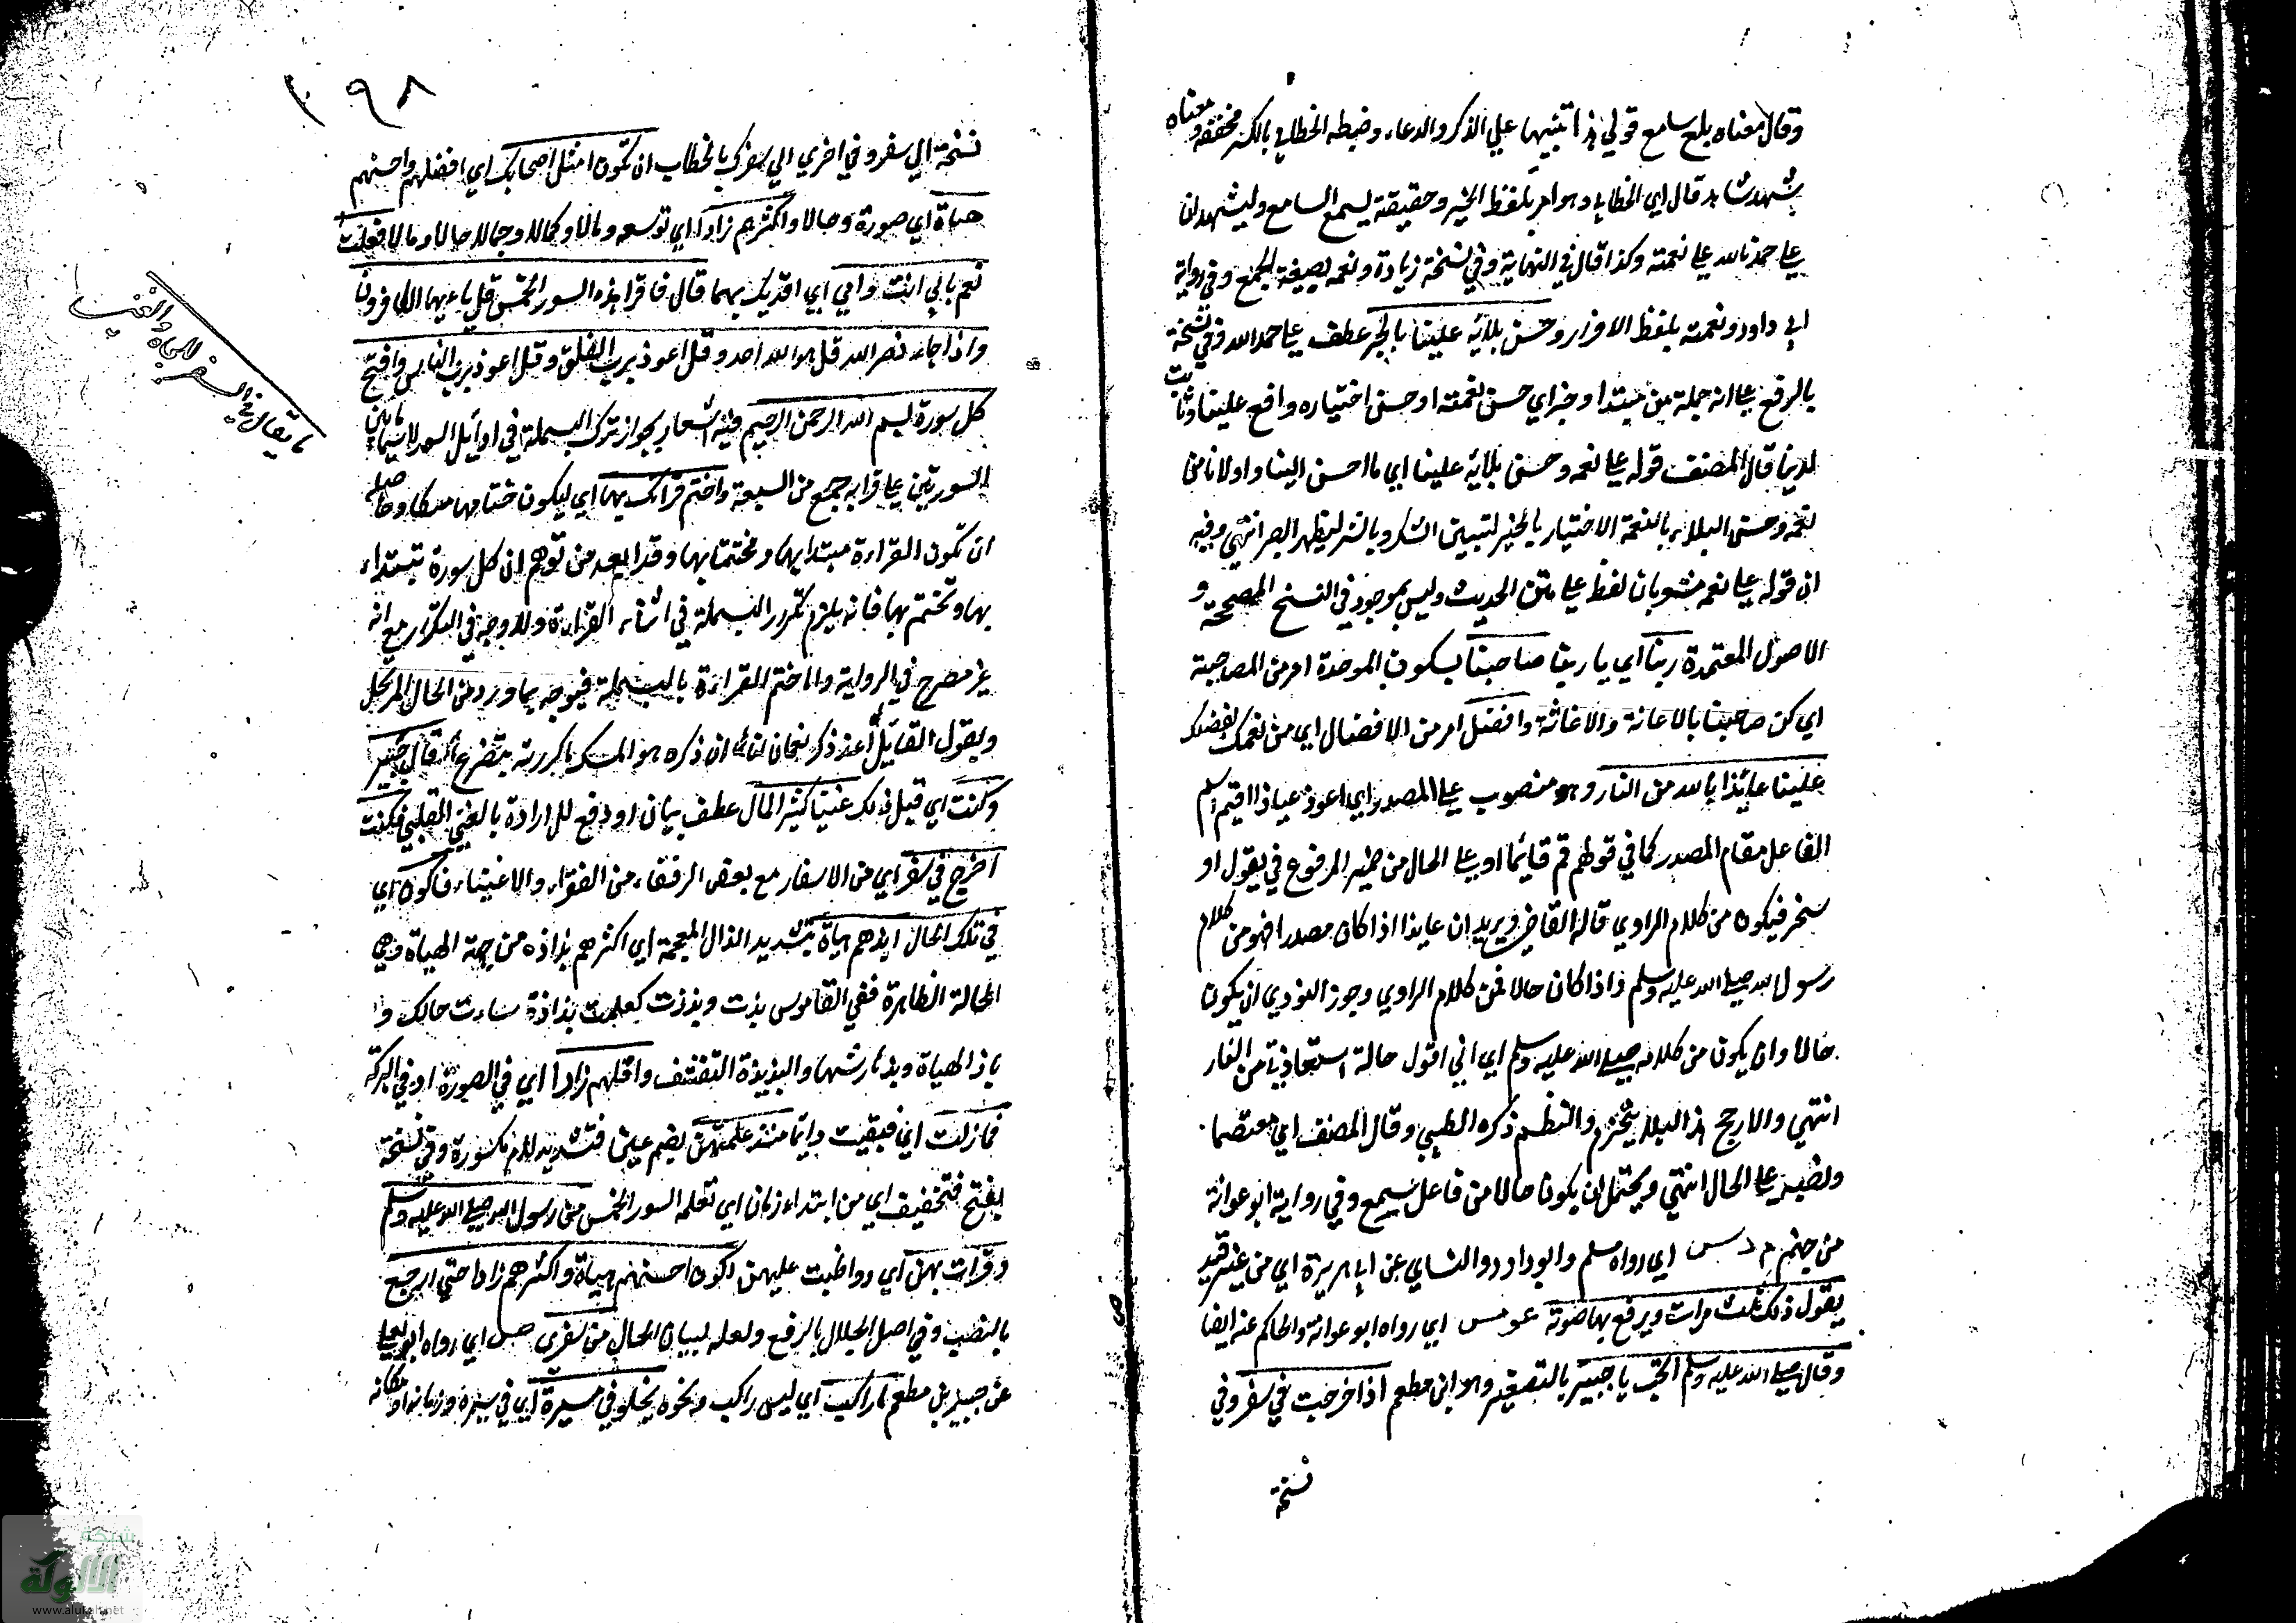 وقال معناه بلغ سامع قولي هذا تنبيها علي الذكر والدعاء وضبطه الخطابي بالكسر مخففة ومعناه
شهد شاهد قال اي الخطابي وهو امر بلفظ الخبر وحقيقته ليسمع السامع وليشهد لنا
علي حمدنا لله علي نعمته وكذا قال في النهاية وفي نسخة زيادة ونعمه بصيغة الجمع وفي رواية
ابي داود ونعمته بلفظ الافراد وحسن بلائه علينا بالجر عطف علي حمد الله وفي نسخة
بالرفع علي انه جملة من مبتدا وخبر اي حسن نعمته او حسن اختياره واقع علينا وثابت
لدينا قال المصنف قوله علي نعمه وحسن بلائه علينا اي ما احسن الينا واولانا من
نعمه وحسن البلاء بالنعمة الاختبار بالخير لتبيين الشكر وبالشر ليظهر الصبر انتهي وفيه
ان قوله علي نعمه مشوبان لفظ علي متن الحديث وليس بموجود في النسخ المصححة و
الاصول المعتمدة ربنا اي يا ربنا صاحبنا بسكون الموحدة امر من المصاحبة
اي كن صاحبنا بالاعانة والاغاثة وافضل امر من الافضال اي من نعمك بفضلك
علينا عايذا بالله من النار وهو منصوب علي المصدر اي اعوذ عياذا اقيم اسم
الفاعل مقام المصدر كما في قولهم قم قايما او علي الحال من ضمير المرفوع في يقول او
سحر فيكون من كلام الراوي قاله القاضي ويريد ان عايذا اذا كان مصدرا فهو من كلام
رسول الله صلي الله عليه وسلم واذا كان حالا فمن كلام الراوي وجوز النووي ان يكون
حالا وان يكون من كلامه صلي الله عليه وسلم اي اني اقول حالة استعاذتي من النار
انتهي والارجح هذا لئلا ينخرم والنظم ذكره الطيبي وقال المصنف اي معتصما
ونصبه علي الحال انتهي ويحتمل ان يكون حالا من فاعل سمع وفي رواية ابو عوانة
من جهنم م د س اي رواه مسلم وابو داود والنسائي عن ابي هريرة اي من غير قيد
يقول ذلك ثلث مرات ويرفع بها صوته عو مس اي رواه ابو عوانة والحاكم عنه ايضا
وقال صلي الله عليه وسلم اتحب يا جبير بالتصغير وهو ابن مطعم اذا خرجت في سفر وفي
نسخة
١٩٨
نسخة الي سفر وفي اخري الي سفرك بالخطاب ان تكون امثل اصحابك اي افضلهم واحسنهم
هياة اي صورة وحالا واكثرهم زادا اي توسعه ومالا وكمالا وجمالا حالا ومالا فقلت
نعم بابي انت وامي اي افديك بهما قال فاقرا هذه السور الخمس قل يا ايها الكافرون
واذا جاء نصر الله قل هو الله احد وقل اعوذ برب الفلق وقل اعوذ برب الناس وافتح
كل سورة بسم الله الرحمن الرحيم فيه اشعار بجواز ترك البسملة في اوايل السور لا سيما بين
السورتين علي قرا به جمع من السبعة واختم قراتك بها اي ليكون ختامها مسكا وحاصله
ان تكون القراءة مبتدا بها ومختتما بها وقد ابعد من توهم ان كل سورة تبتداء
بها وتختم بها فانه يلزم تكرار البسملة في اثناء القراءة ولا وجه في التكرار مع انه
غير مصرح في الرواية واما ختم القراءة بالبسملة فيوجه بما ورد من الحال المرتحل
ويقول القايل اعد ذكر نعمان لنا ان ذكره هو المسك ما كررته يتضوع قال جبير
وكنت اي قبل ذلك غنيا كثير المال عطف بيان او دفع للارادة بالغني القلبي فكنت
اخرج في سفر اي من الاسفار مع بعض الرفقاء من الفقراء والاغنياء فاكون اي
في تلك الحال ابذهم هياة بتشديد الذال المعجمة اي اكثرهم بذاذة من جهة الهياة وهي
الحالة الظاهرة ففي القاموس بذت وبذذت كعلمت بذاذة ساءت حالك و
باذ الهياة وبذها رثها والبذيذة التقشف واقلهم زادا اي في الصورة او في البركة
فما زلت اي فبقيت دايما منذ علمتهن بضم عين فتشديد لام مكسورة وفي نسخة
بفتح فتخفيف اي من ابتداء زمان اي تعلمه السور الخمس من رسول الله صلي الله عليه وسلم
وقرات بهن اي وواظبت عليهن اكون احسنهم هياة واكثرهم زادا حتي ارجع
بالنصب وفي اصل الجلال بالرفع ولعله لبيان الحال من سفري ص اي رواه ابو يعلي
عن جبير بن مطعم ما راكب اي ليس راكب ونحوه يخلو في مسيره اي في سيره وزمانه او مكانه
ما يقال في السفر للجاه والغني